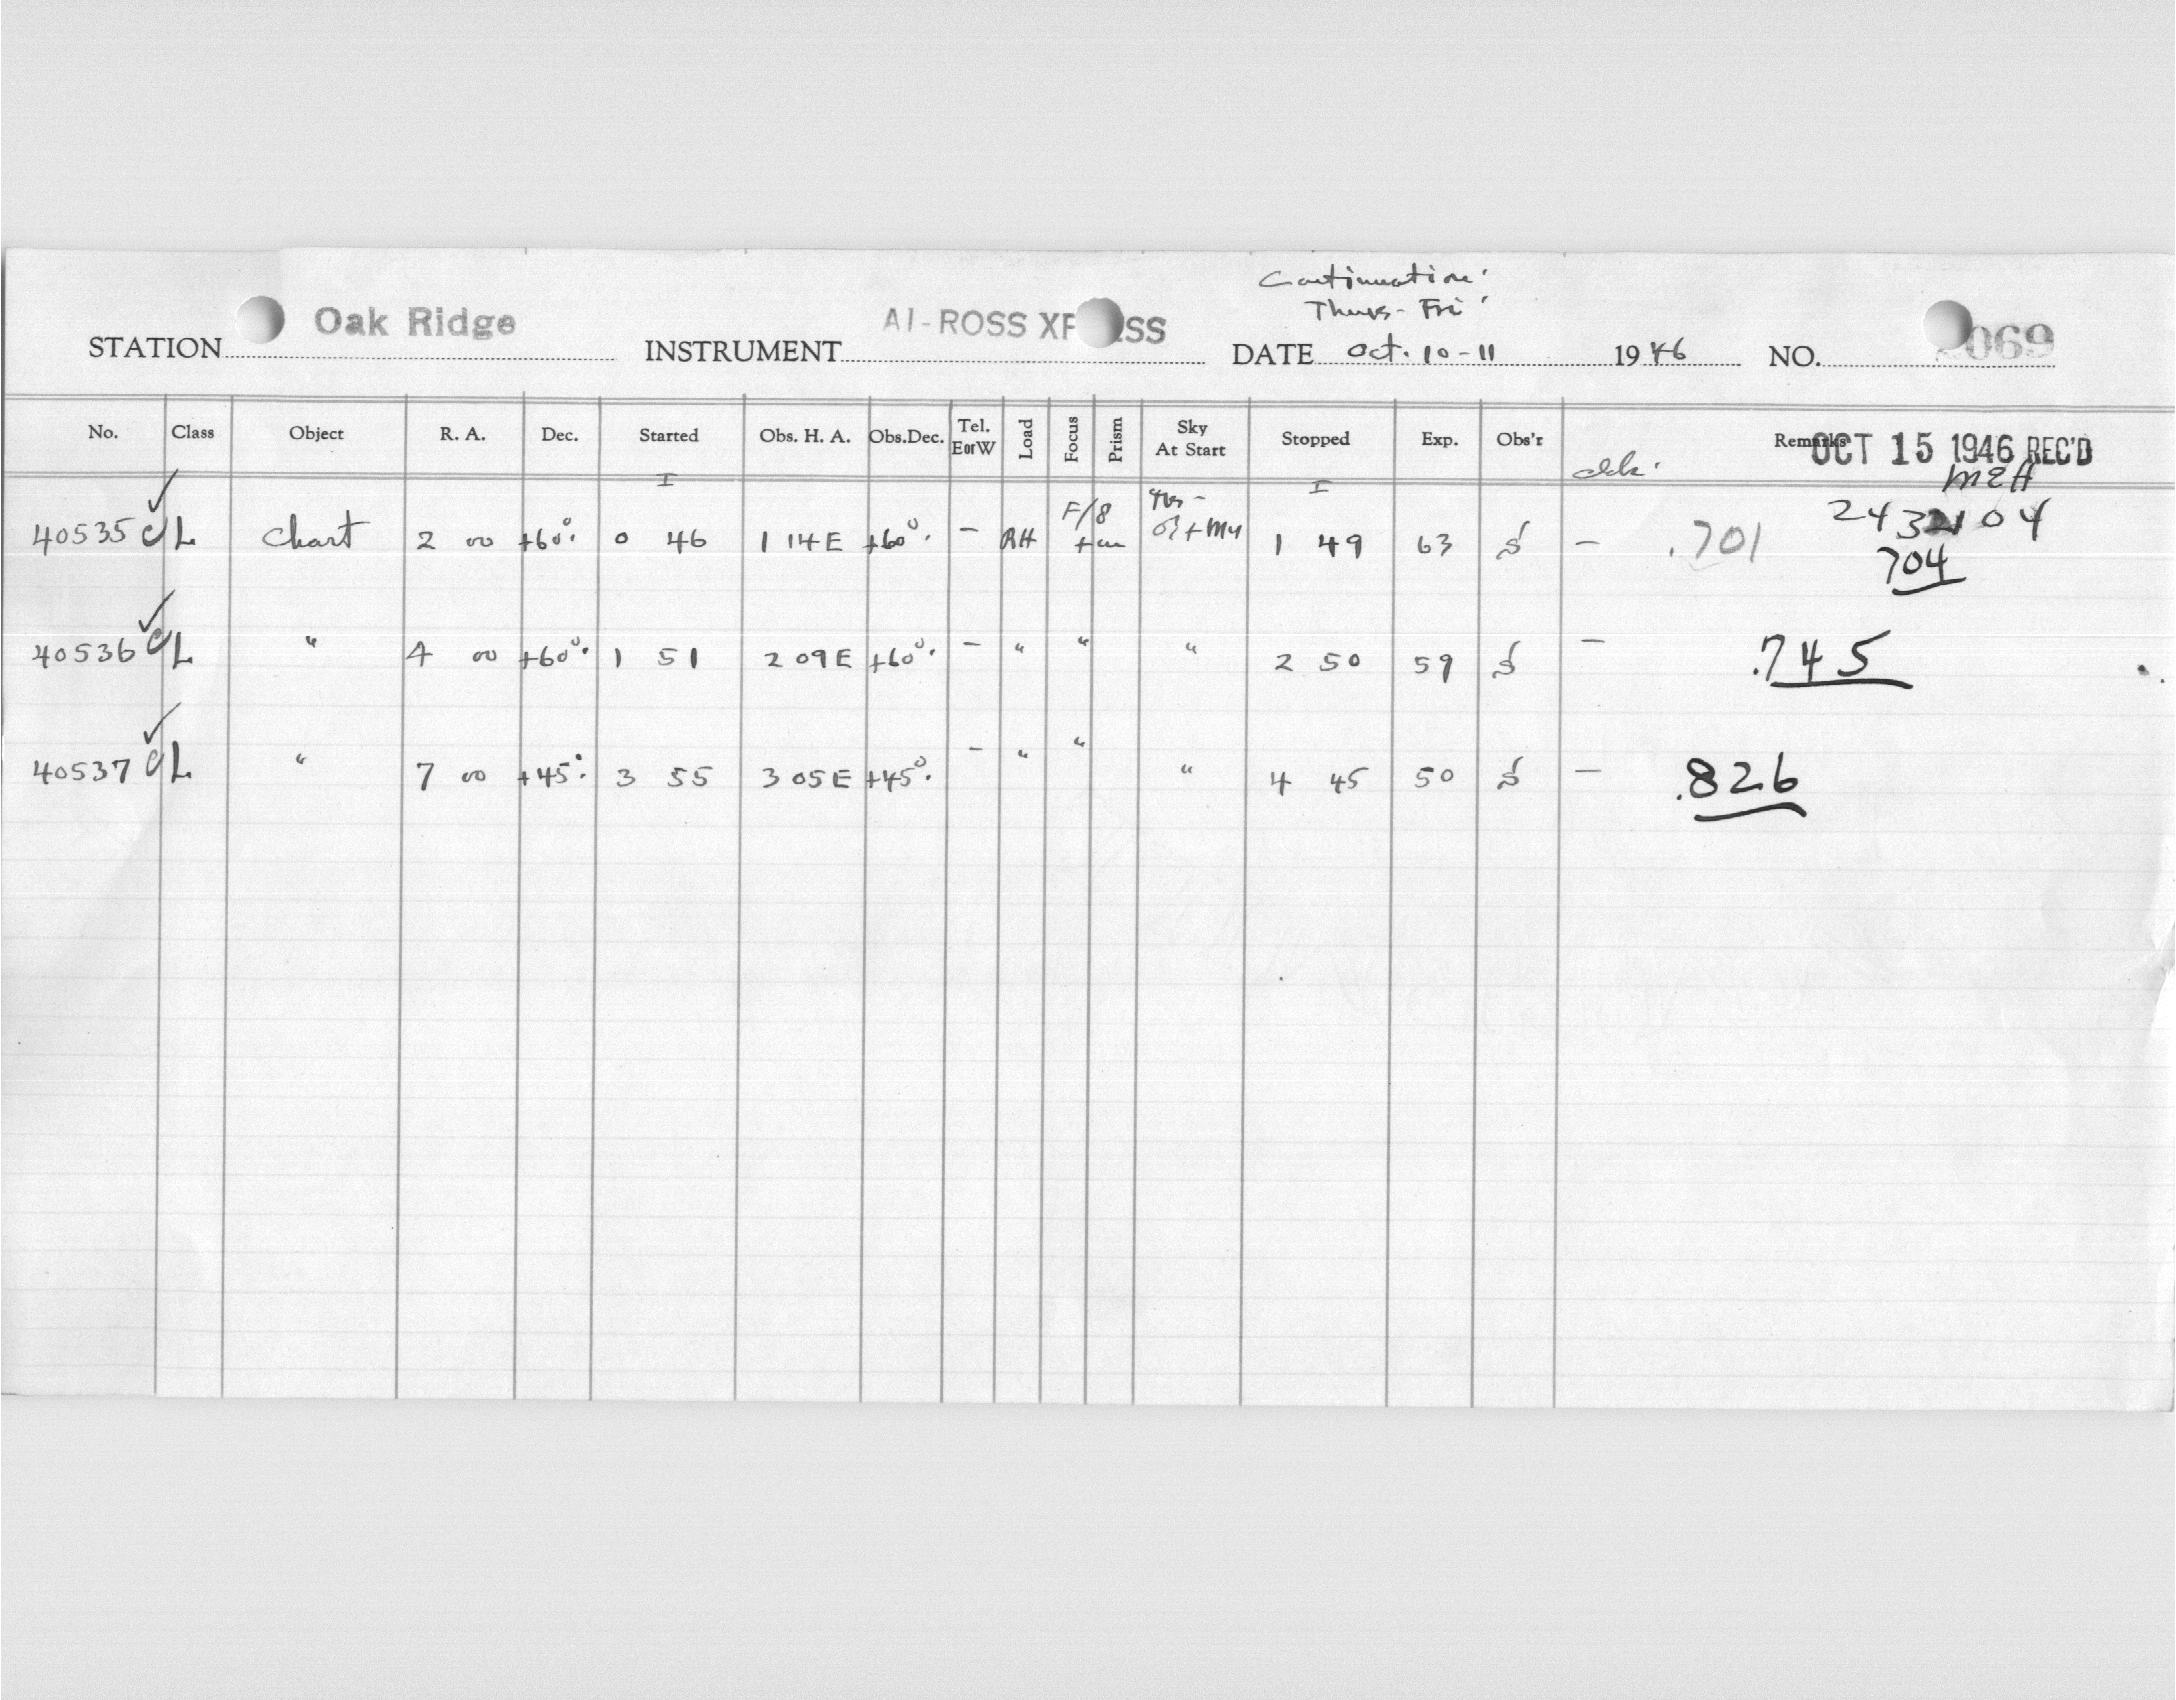 Continuation'
Thurs - Fri'
STATION Oak Ridge INSTRUMENT AI-ROSS XP SS DATE Oct. 10-11 1946 NO. 069
No. Class Object R. A. Dec. Started Obs. H. A. Obs.Dec. Tel. E or W Load Focus Prism Sky At Start Stopped Exp. Obs'r Remarks
OCT 15 1946 REC'D
I I
40535 c L Chart 2 00 +60° 0 46 1 14E +60° - RH F/8 1 49 63 - .701 2432104
704
40536 c L " 4 00 +60° 1 51 2 09E +60° - " " " 2 50 59 - .745
40537 c L " 7 00 +45° 3 55 3 05E +45° - " " " 4 45 50 - .826